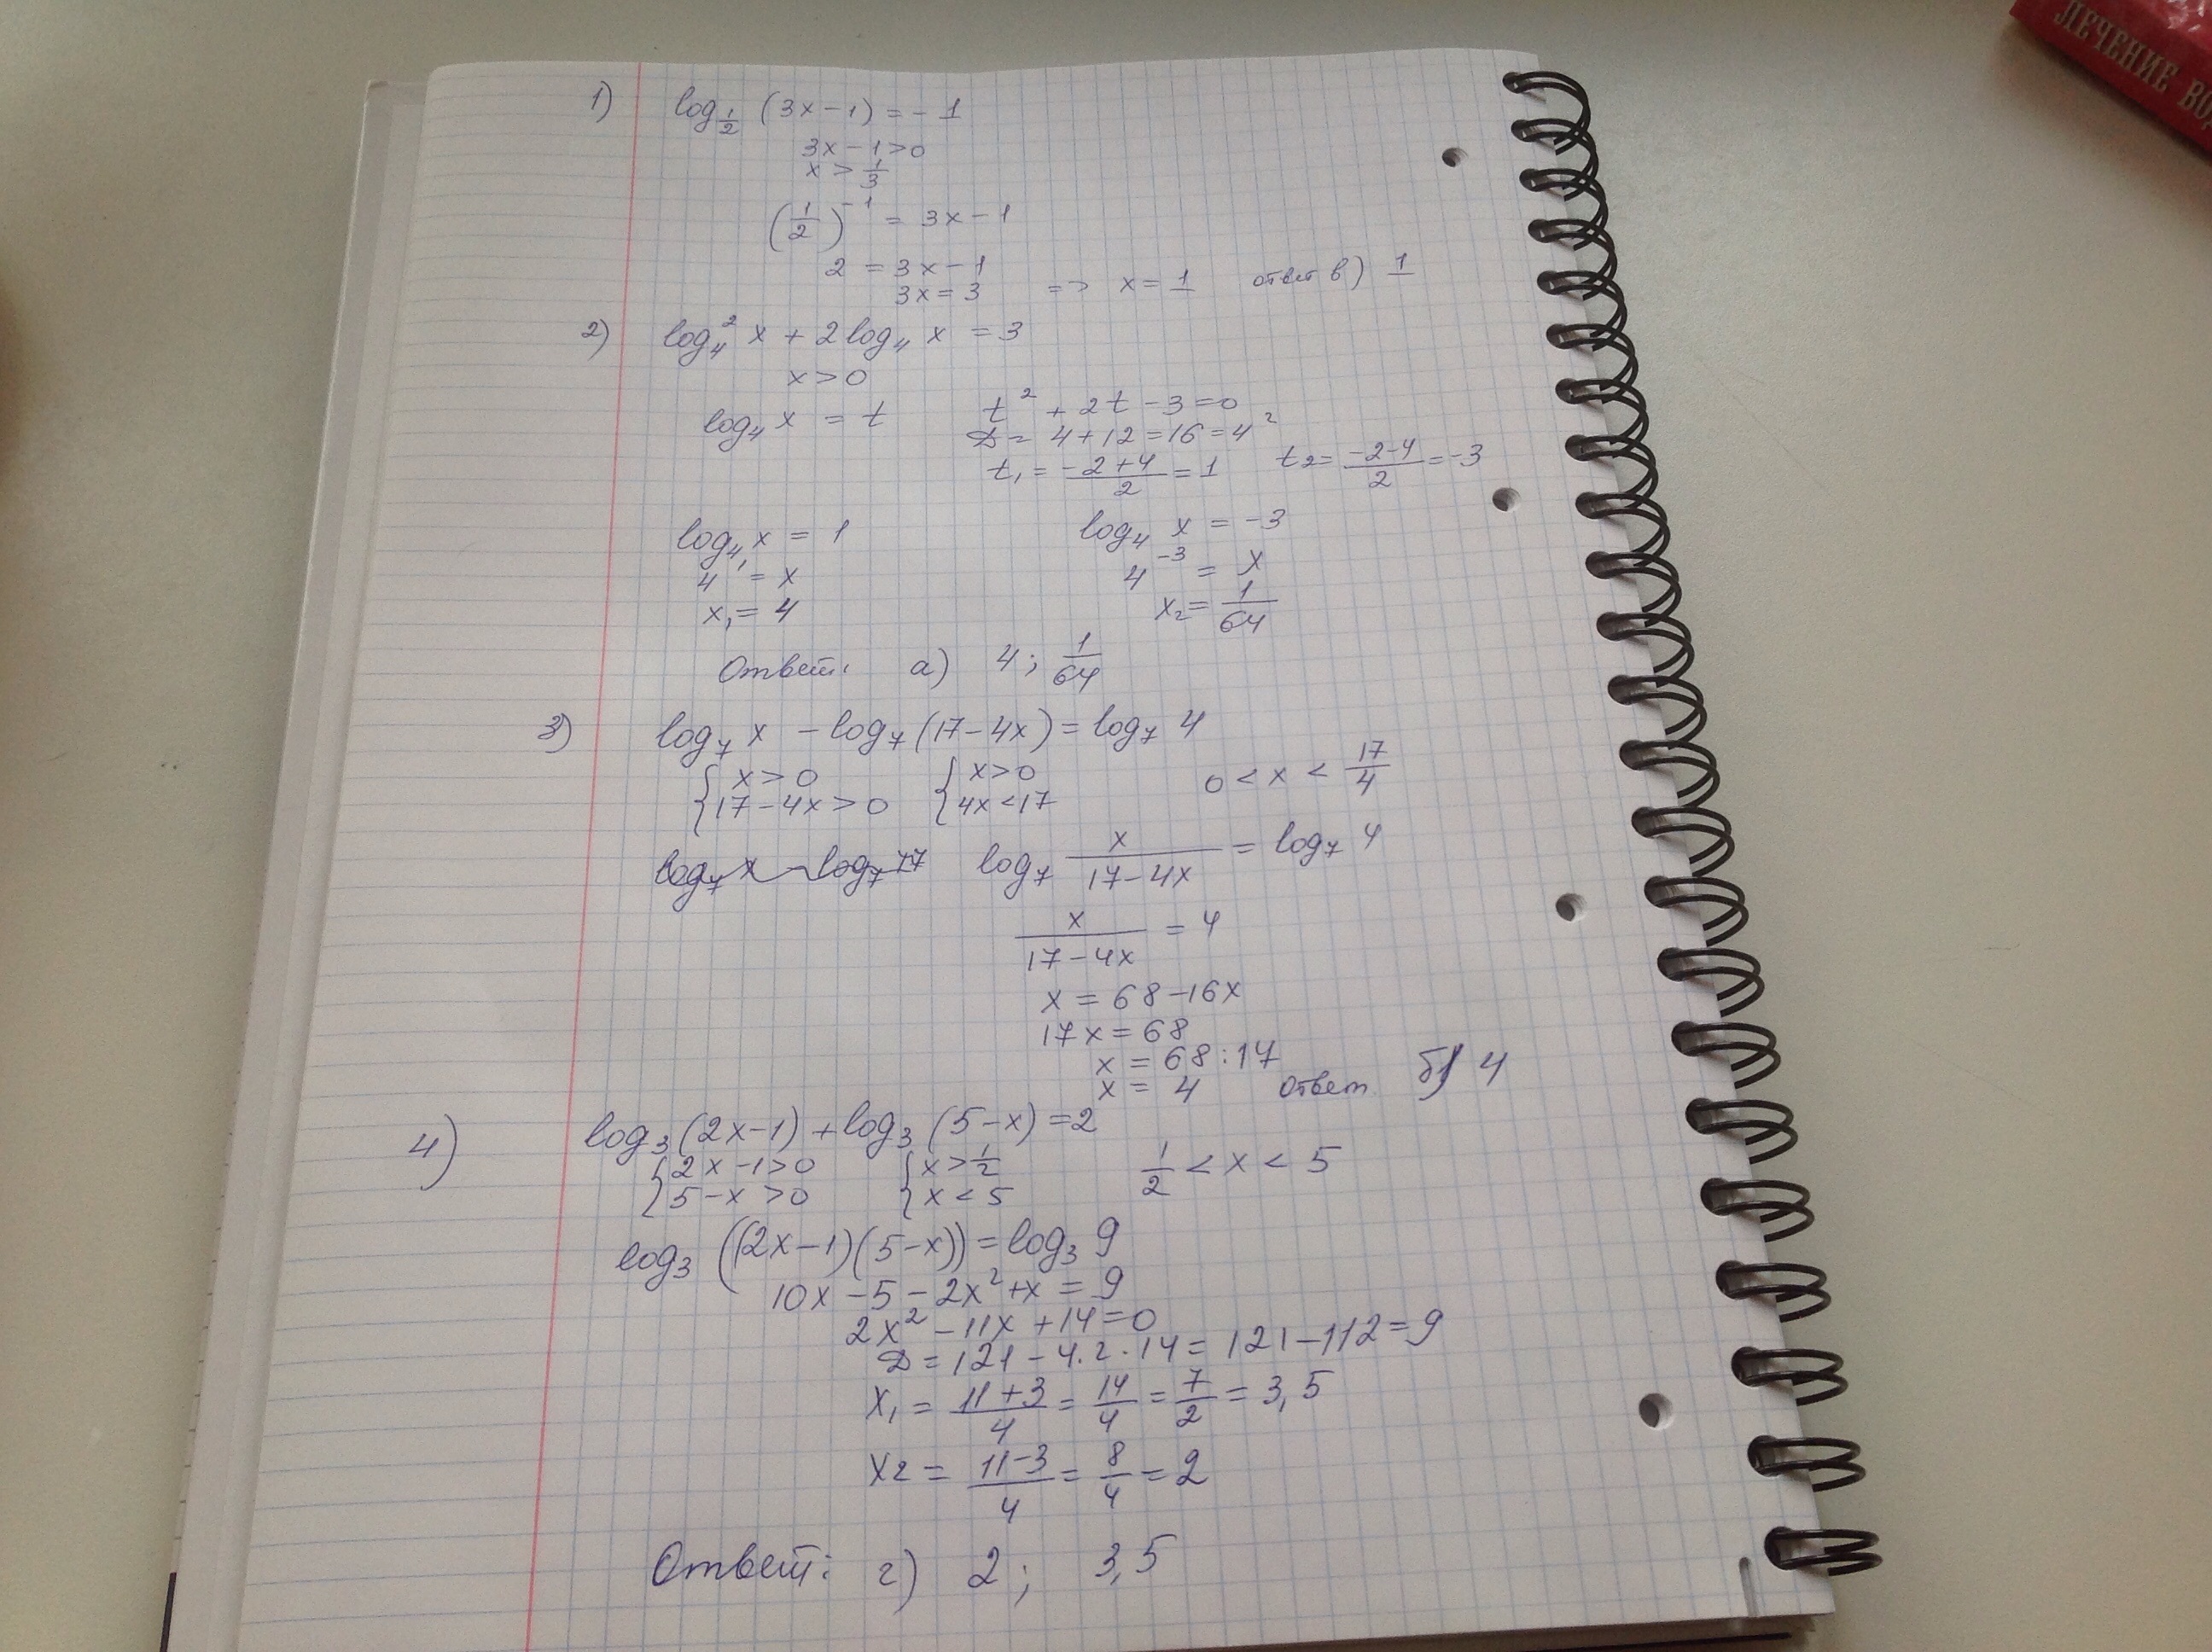 ЛЕЧЕНИЕ
1) log_{1/2} (3x-1) = -1
3x-1>0
x > 1/3
(1/2)^{-1} = 3x-1
2 = 3x-1
3x = 3 => x = 1 ответ в) 1
2) log_4^2 x + 2 log_4 x = 3
x>0
log_4 x = t t^2 + 2t - 3 = 0
D = 4+12 = 16 = 4^2
t_1 = (-2+4)/2 = 1 t_2 = (-2-4)/2 = -3
log_4 x = 1 log_4 x = -3
4^1 = x 4^{-3} = x
x_1 = 4 x_2 = 1/64
Ответ: а) 4; 1/64
3) log_7 x - log_7 (17-4x) = log_7 4
{ x>0 { x>0 0 < x < 17/4
{ 17-4x>0 { 4x<17
log_7 x - log_7 17 log_7 x/(17-4x) = log_7 4
x/(17-4x) = 4
x = 68-16x
17x = 68
x = 68:17
x = 4 Ответ б) 4
4) log_3 (2x-1) + log_3 (5-x) = 2
{ 2x-1>0 { x>1/2 1/2 < x < 5
{ 5-x>0 { x<5
log_3 ((2x-1)(5-x)) = log_3 9
10x-5-2x^2+x = 9
2x^2-11x+14=0
D = 121-4·2·14 = 121-112 = 9
x_1 = (11+3)/4 = 14/4 = 7/2 = 3,5
x_2 = (11-3)/4 = 8/4 = 2
Ответ: г) 2; 3,5